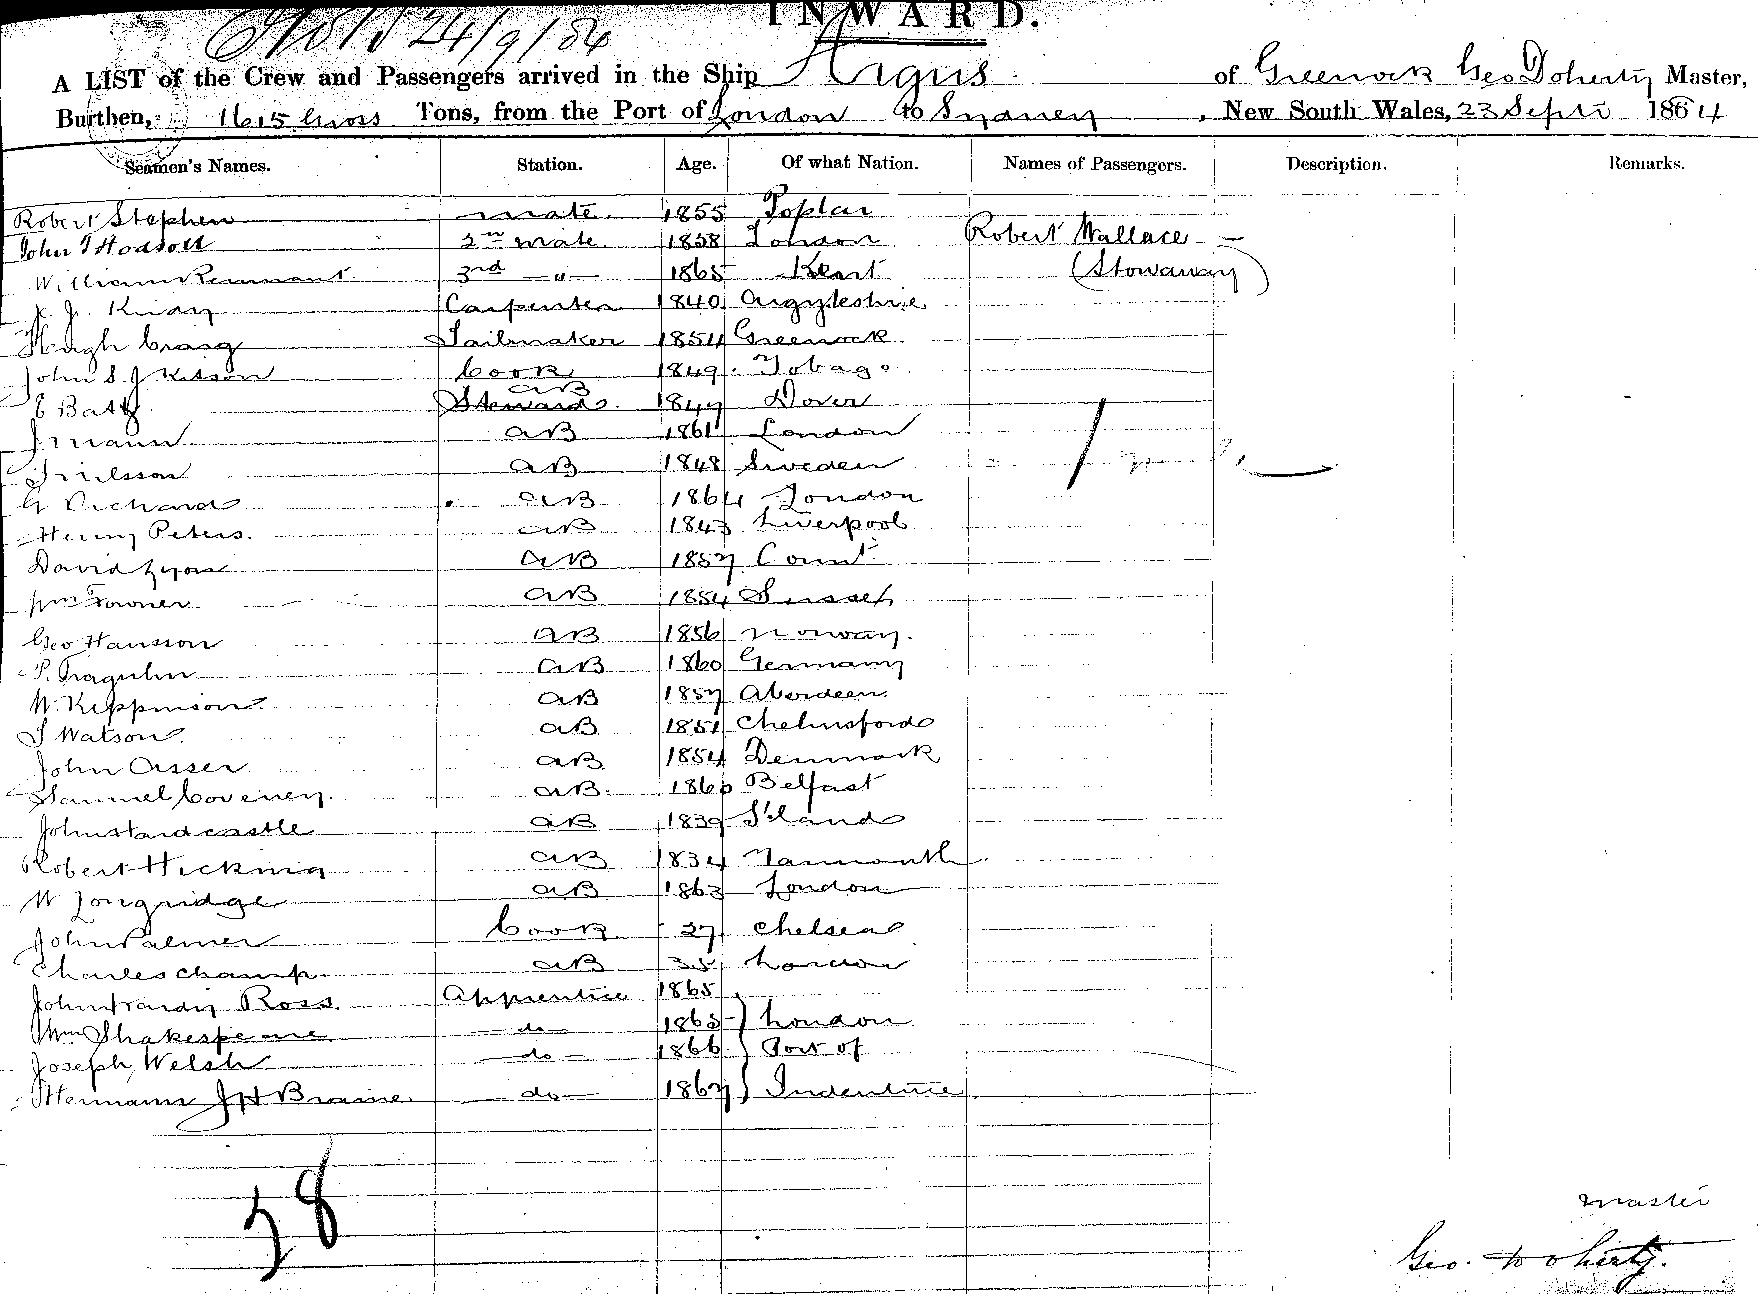 INWARD.
24/9/84
A LIST of the Crew and Passengers arrived in the Ship Argus of Greenock Geo Doherty Master,
Burthen, 1615 Gross Tons, from the Port of London to Sydney, New South Wales, 23 Septr 1884
Seamen's Names. Station. Age. Of what Nation. Names of Passengers. Description. Remarks.
Robert Stephen mate 1855 Poplar
John T Hodson 2nd mate 1858 London Robert Wallace
William Remnant 3rd " 1865 Kent (Stowaway)
Carpenter 1840 Argyleshire
Hugh Craig Sailmaker 1854 Greenock
John S. J Kitson Cook 1849 Tobago
AB
E Batt Stewards 1847 Dover
J Mann AB 1861 London
J Nilsson AB 1848 Sweden
G Pichard AB 1864 London
Henry Peters AB 1843 Liverpool
David Lyon AB 1857
Wm Towner AB 1854 Sussex
Geo Hansson AB 1856 Norway
P. AB 1860 Germany
W. Kippinson AB 1857 Aberdeen
J Watson AB 1851 Chelmsford
John Asser AB 1854 Denmark
Samuel Coveney AB 1860 Belfast
John Hardcastle AB 1839 S'land
Robert Hickning AB 1834 Yarmouth
W Longridge AB 1863 London
John Palmer Cook 27 Chelsea
Charles Champ AB 35 London
John Hardy Ross Apprentice 1865
Wm Shakespeare do 1865 London
Joseph Welsh do 1866 Port of
Hermann J H Braine do 1867 Indenture
28
master
Geo. Doherty.